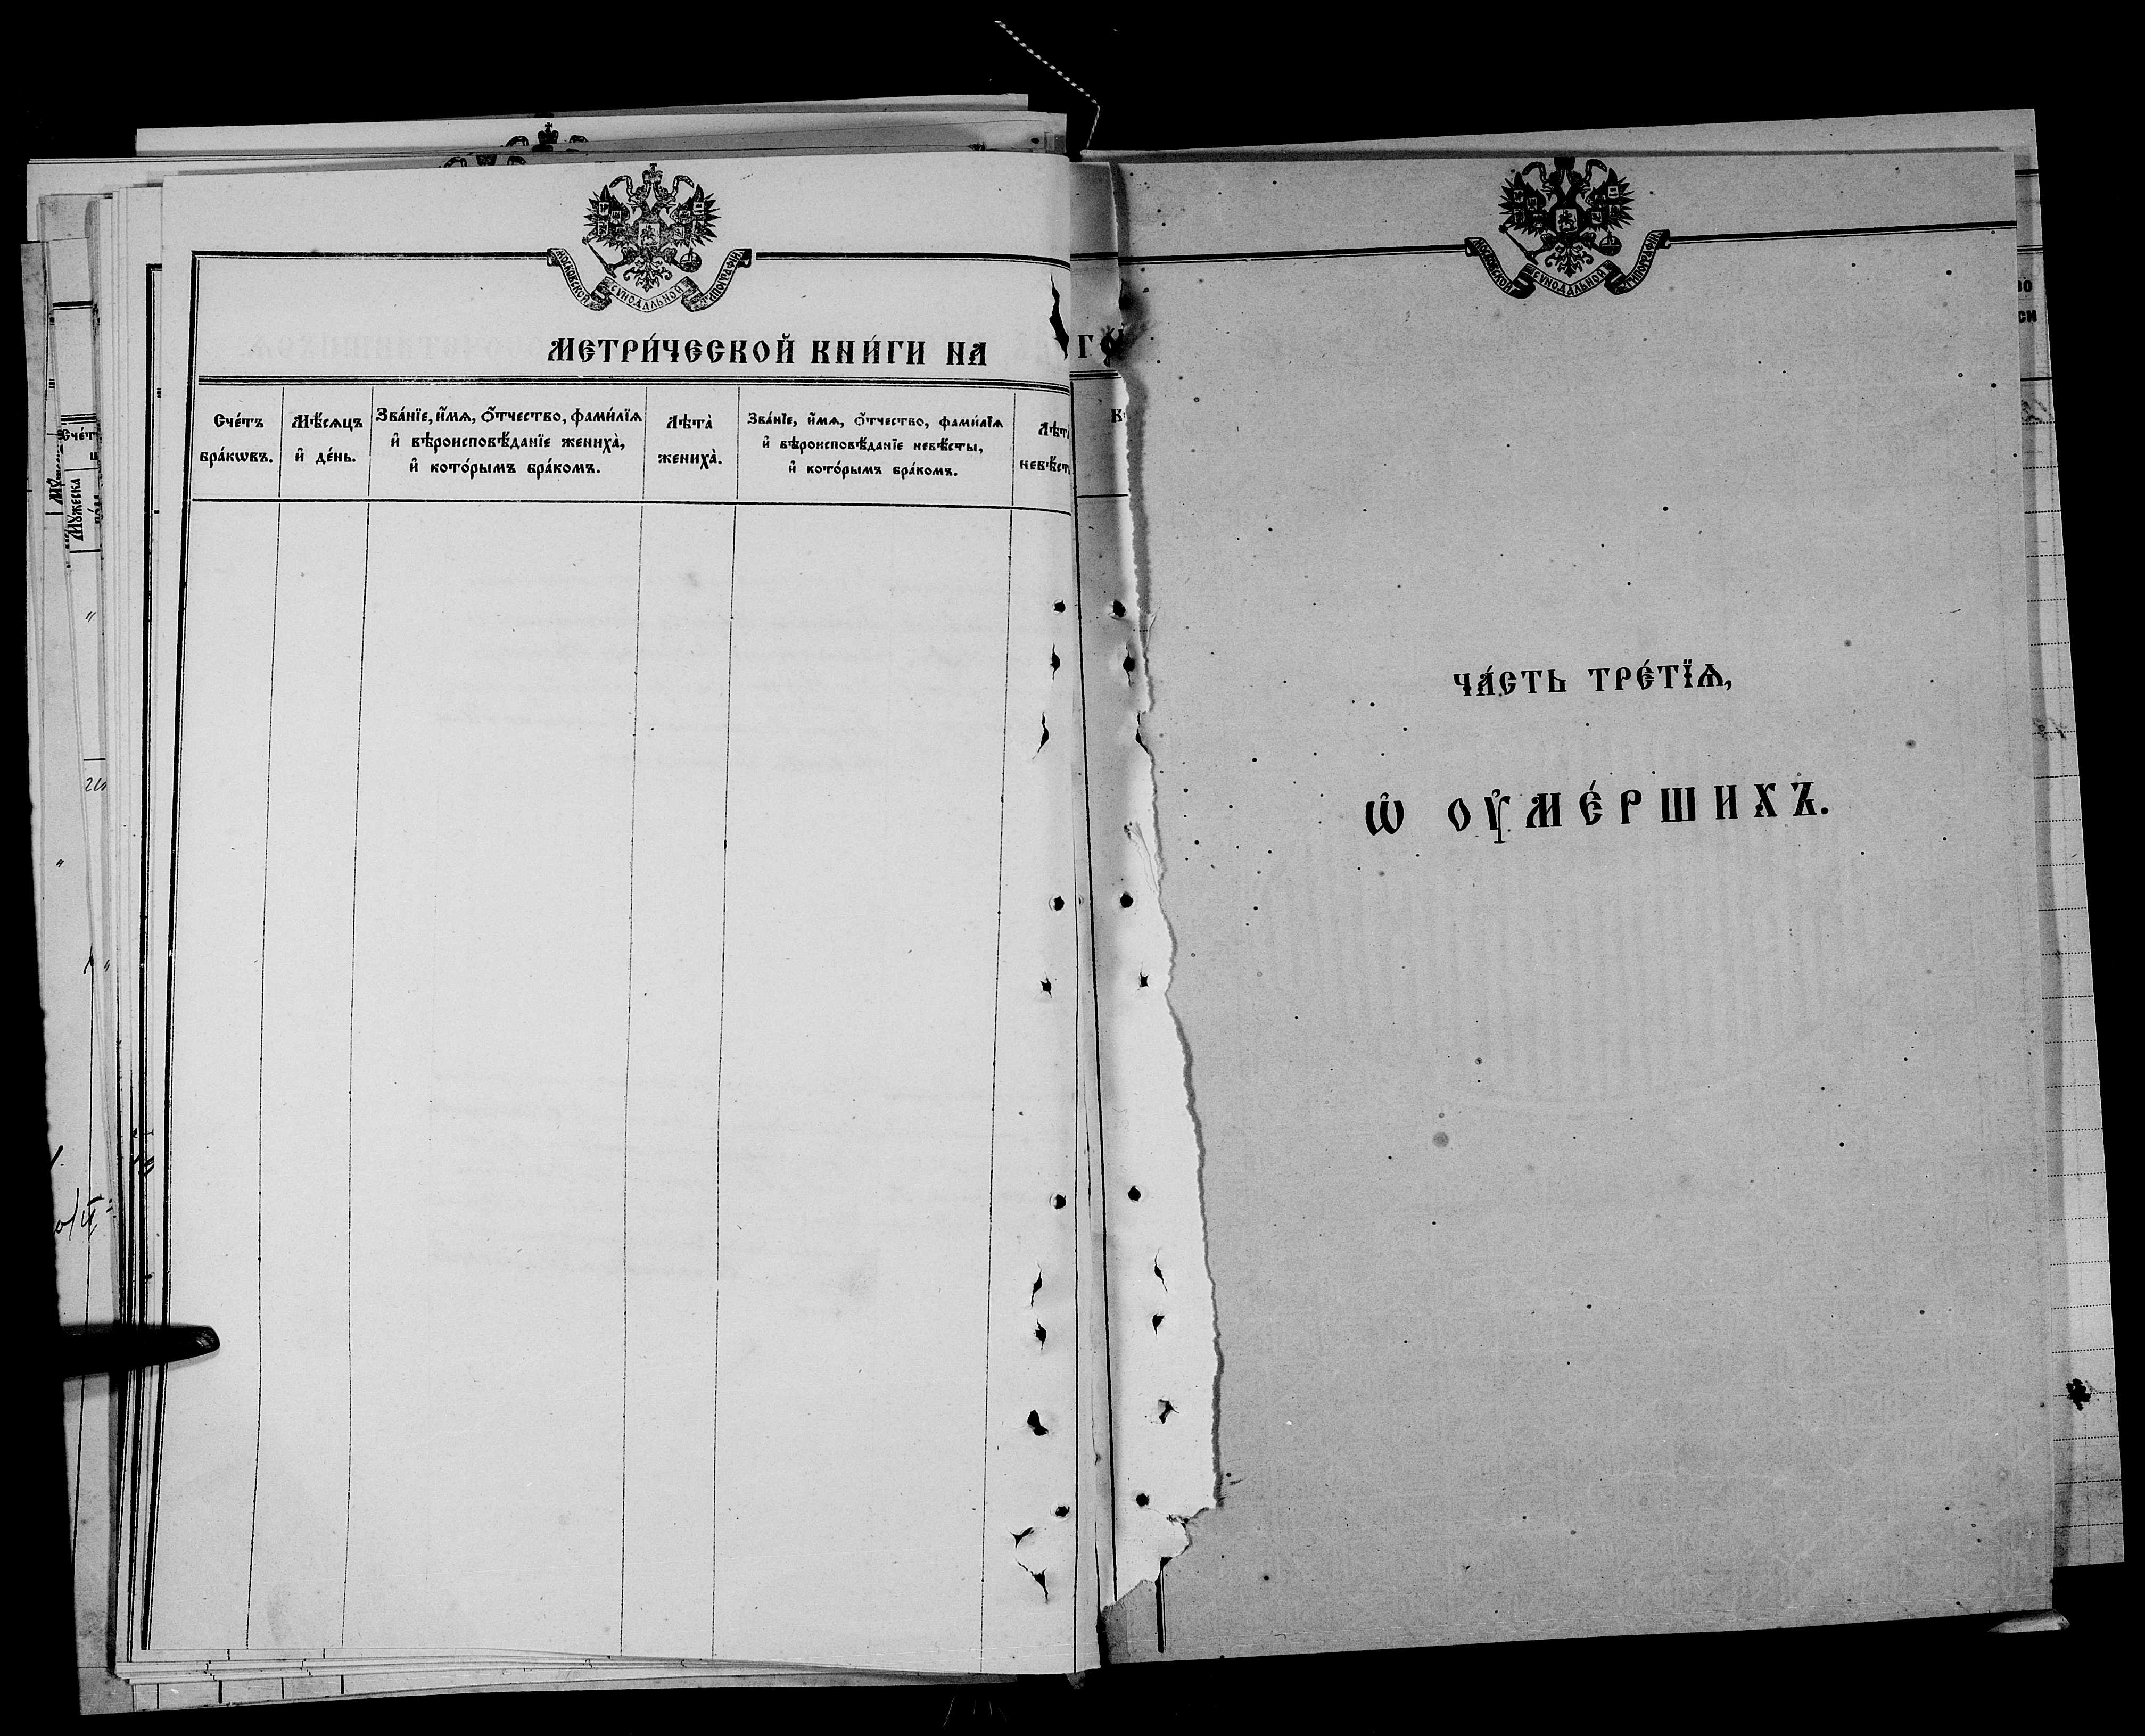 МОСКОВСКОЙ СѴНОДАЛЬНОЙ ТИПОГРАФІИ.
МЕТРИ́ЧЕСКОЙ КНИ́ГИ НА
Сче́тъ
бра́кѡвъ.
Мѣ́сяцъ
и҆ де́нь.
Зва́нїе, и҆́мѧ, ѻ҆́тчество, фами́лїѧ
и҆ вѣроисповѣ́данїе жениха̀,
и҆ кото́рымъ бра́комъ.
Лѣта̀
жениха̀.
Зва́нїе, и҆́мѧ, ѻ҆́тчество, фами́лїѧ
и҆ вѣроисповѣ́данїе невѣ́сты,
и҆ кото́рымъ бра́комъ.
Лѣт
невѣ́ст
МОСКОВСКОЙ СѴНОДАЛЬНОЙ ТИПОГРАФІИ.
ЧА́СТЬ ТРЕ́ТЇѦ,
Ѡ҆ ОУ҆МЕ́РШИХЪ.
Сче́т
Мꙋ́жеска